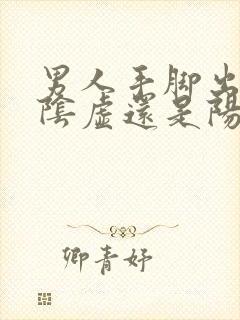 男人手脚出
陰虛還是陽
卿青妤